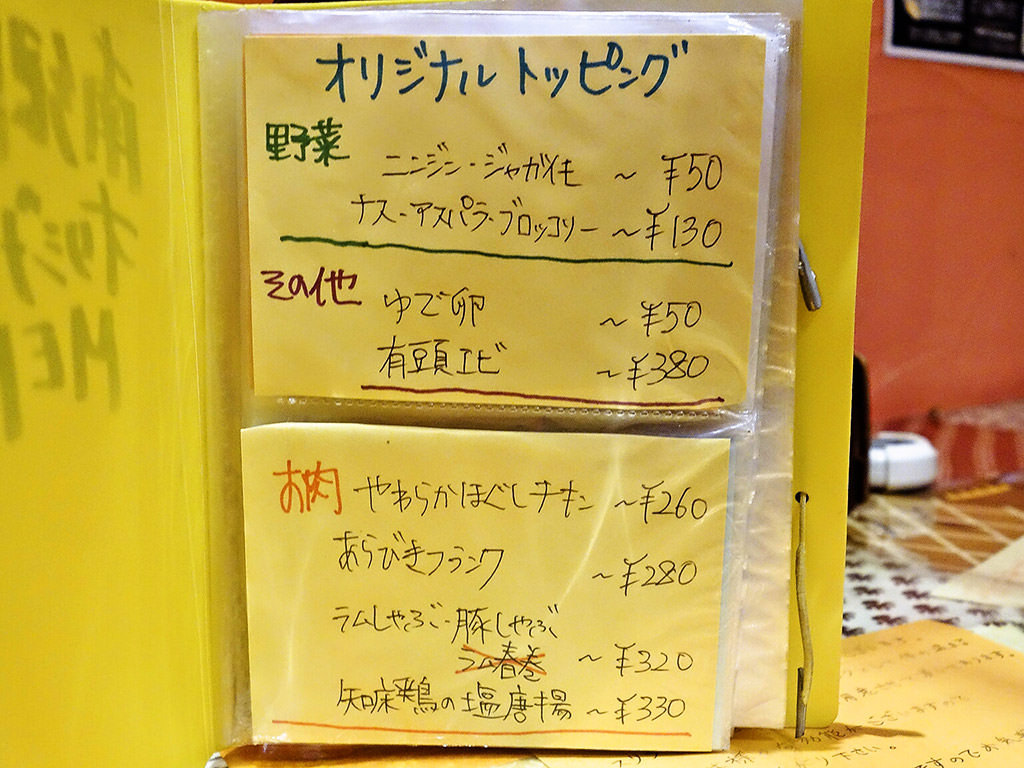 オリジナルトッピング
野菜
ニンジン・ジャガイモ ～ ¥50
ナス・アスパラ・ブロッコリー ～¥130
その他
ゆで卵 ～¥50
有頭エビ ～¥380
お肉
やわらかほぐしチキン ～¥260
あらびきフランク ～¥280
ラムしゃぶ・豚しゃぶ
ラム春巻 ～¥320
知床鶏の塩唐揚 ～¥330